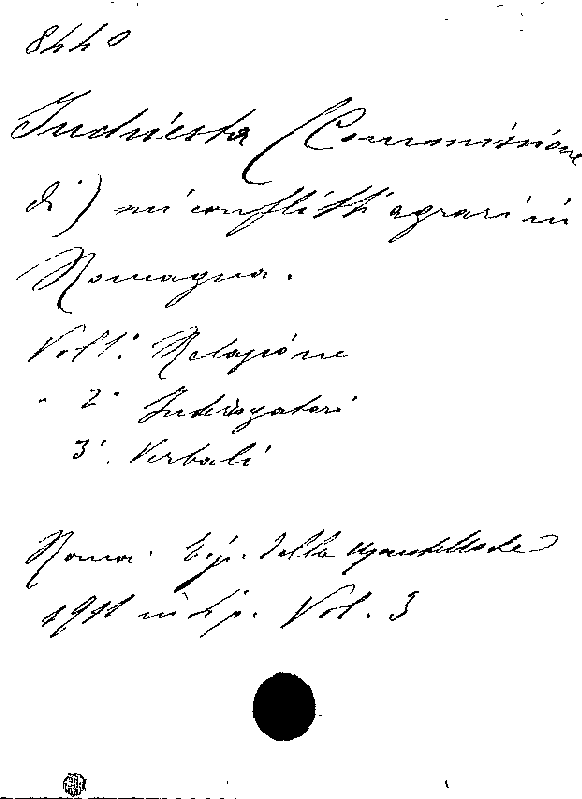 8440
Inchiesta (Commissione
di) sui conflitti agrari in
Romagna.
Vol 1.° Relazione
" 2° Interrogatori
3°. Verbali
Roma. Tip. della
1911 in 4° p. Vol. 3